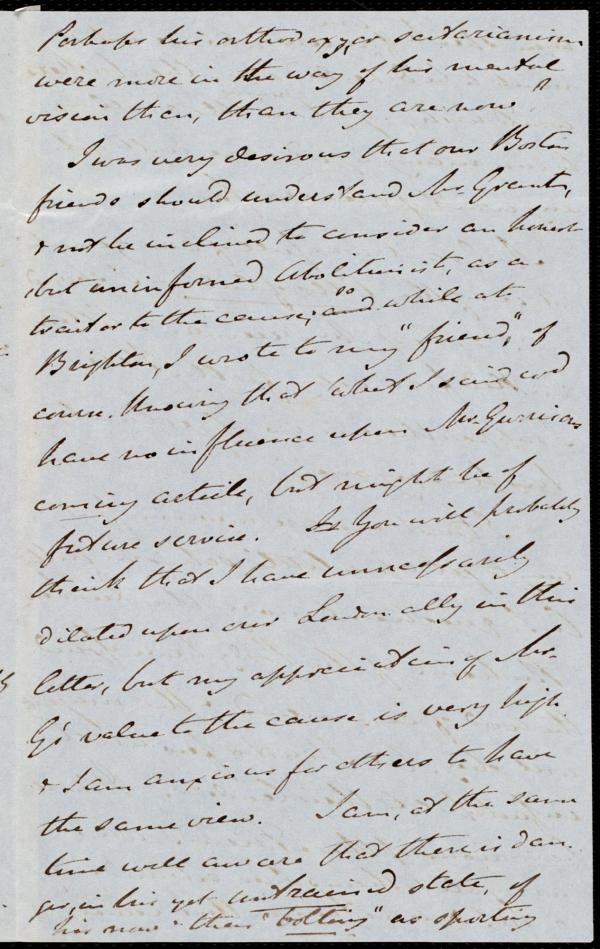 Perhaps his orthodoxy, or sectarianism
were more in the way of his mental
vision then, than they are now?
I was very desirous that our Boston
friends should understand Mr. Grant,
& not be inclined to consider an honest
but uninformed Abolitionist, as a
traitor to the cause; so and while at
Brighton, I wrote to my "friend," of
course. Knowing that what I said wod
have no influence upon Mr. Garrison's
coming article, but might be of
future service. You will probably
think that I have unnecessarily
dilated upon our London ally in this
letter, but my appreciation of Mr.
G's value to the cause is very high
& I am anxious for others to have
the same view. I am, at the same
time well aware that there is dan-
ger, in his yet untrained state, of
his now & then "bolting" as sporting